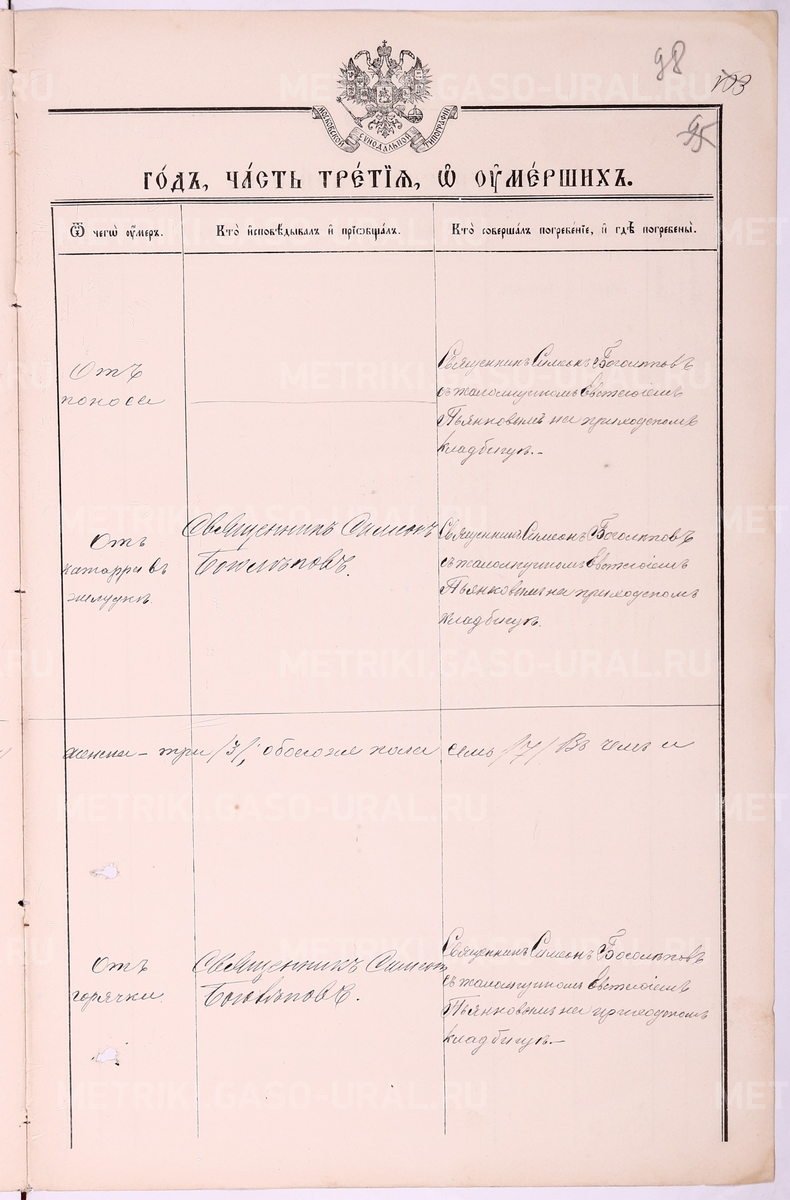 98
103
95
МОСКОВСКОЙ СѴНОДАЛЬНОЙ ТИПОГРАФІИ
ГО́ДЪ, ЧА́СТЬ ТРЕ́ТІѦ, Ѡ҆ ОУ҆МЕ́РШИХЪ.
Ѿ чегѡ̀ оу҆́меръ.
Кто̀ и҆сповѣ́дывалъ и҆ прїѡбща́лъ.
Кто̀ соверша́лъ погребе́нїе, и҆ гдѣ̀ погребены̀.
Отъ
поноса
Священникъ Симеонъ Боголѣповъ
съ псаломщикомъ Евгеніемъ
Пьянковымъ на приходскомъ
кладбищѣ.-
Отъ
катарра въ
желудкѣ.
Священникъ Симеонъ
Боголѣповъ.
Священникъ Симеонъ Боголѣповъ
съ псаломщикомъ Евгеніемъ
Пьянковымъ на приходскомъ
кладбищѣ.
женска - три /3/, обоего же пола семь /7/ Въ чемъ и
Отъ
горячки.
Священникъ Симеонъ
Боголѣповъ.
Священникъ Симеонъ Боголѣповъ
съ псаломщикомъ Евгеніемъ
Пьянковымъ на приходскомъ
кладбищѣ.-
METRIKI.GASO-URAL.RU